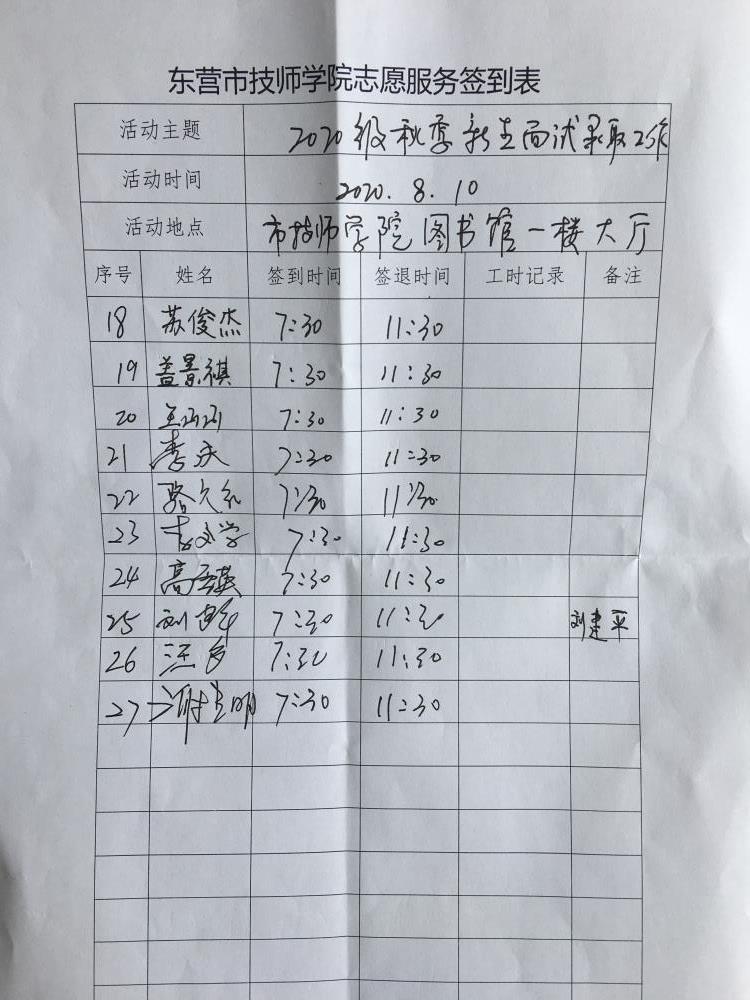 东营市技师学院志愿服务签到表
活动主题 2020级秋季新生面试录取工作
活动时间 2020.8.10
活动地点 市技师学院图书馆一楼大厅
序号 姓名 签到时间 签退时间 工时记录 备注
18 苏俊杰 7:30 11:30
19 盖景祺 7:30 11:30
20 王涵涵 7:30 11:30
21 李庆 7:30 11:30
22 骆久 7:30 11:30
23 7:30 11:30
24 高 7:30 11:30
25 刘建平 7:30 11:30 刘建平
26 汪 7:30 11:30
27 谢 明 7:30 11:30